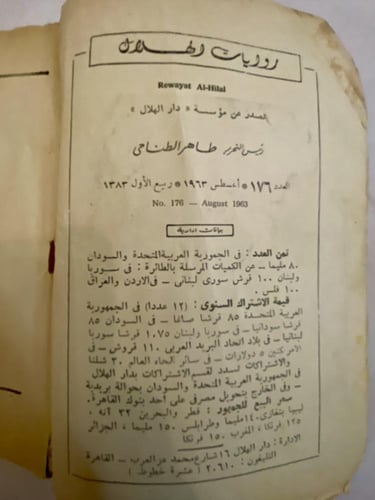 روايات الهلال
Rewayat Al-Hilal
تصدر عن مؤسسة « دار الهلال »
رئيس التحرير طاهر الطناحى
العدد ١٧٦ * أغسطس ١٩٦٣ * ربيع الأول ١٣٨٣
No. 176 — August 1963
بيانات ادارية
ثمن العدد : فى الجمهورية العربية المتحدة والسودان
٨٠ مليما - عن الكميات المرسلة بالطائرة : فى سوريا
ولبنان ١٠٠ قرش سورى لبنانى - فى الاردن والعراق
١٠٠ فلس
قيمة الاشتراك السنوى : ( ١٢ عددا ) فى الجمهورية
العربية المتحدة ٨٥ قرشا صاغا - فى السودان ٨٥
قرشا سودانيا - فى سوريا ولبنان ١٠٧٥ قرشا سوريا
لبنانيا - فى بلاد اتحاد البريد العربى ١١٠ قروش - فى
الامريكتين ٥ دولارات - فى سائر انحاء العالم ٣٠ شلنا
والاشتراكات تسدد لقسم الاشتراكات بدار الهلال
فى الجمهورية العربية المتحدة والسودان بحوالة بريدية
- وفى الخارج بتحويل مصرفى على أحد بنوك القاهرة.
سعر البيع للجمهور : قطر والبحرين ٣٢ آنه ،
ليبيا بنغازى ١٤٠ مليما وطرابلس ١٥٠ مليما ، الجزائر
١٢٥ فرنكا ، المغرب ١٥٠ فرنكا
الادارة : دار الهلال ١٦ شارع محمد عز العرب - القاهرة
التليفون : ٢٠٦١٠ ( عشرة خطوط )